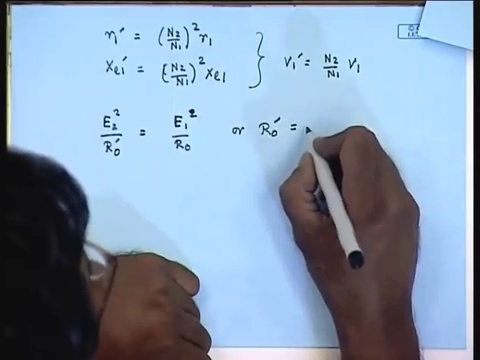 r₁′ = (N₂/N₁)² r₁
x_{e1}′ = (N₂/N₁)² x_{e1} } V₁′ = N₂/N₁ V₁
E₂²/R₀′ = E₁²/R₀ or R₀′ =